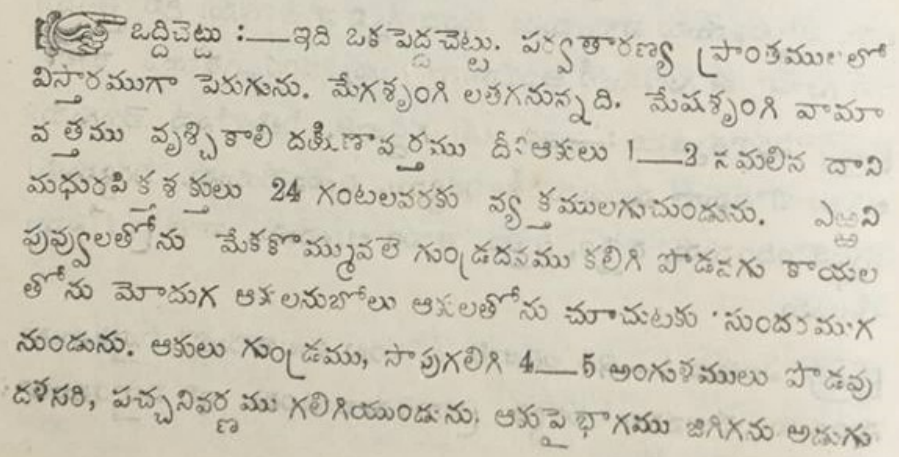 ఒద్దిచెట్టు :—ఇది ఒక పెద్దచెట్టు. పర్వతారణ్య ప్రాంతములలో
విస్తారముగా పెరుగును. మేగశృంగి లతగనున్నది. మేషశృంగి వామా
వర్తము వృశ్చికాలి దక్షిణావర్తము దీని ఆకులు 1—2 నమలిన దాని
మధురపిక్తశక్తులు 24 గంటలవరకు వ్యక్తములగుచుండును. ఎఱ్ఱని
పువ్వులతోను మేకకొమ్మువలె గుండ్రదనము కలిగి పొడవగు కాయల
తోను మోదుగ ఆకులనుబోలు ఆకులతోను చూచుటకు సుందరముగ
నుండును. ఆకులు గుండ్రము, సాపుగలిగి 4—5 అంగుళములు పొడవు
దళసరి, పచ్చనివర్ణము గలిగియుండును. ఆకుపైభాగము జిగిగను అడుగు